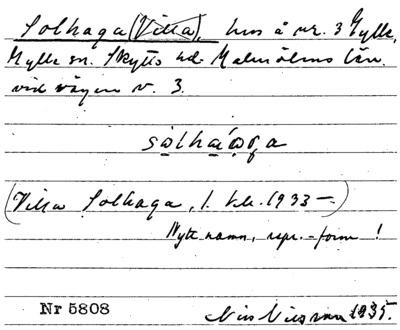 Solhaga (Villa), hus å nr. 3 Gylle,
Gylle sn. Skytts hd. Malmöhus län.
vid vägen v. 3.
(Villa Solhaga, 1. 1933 —)
Nytt namn, repr.-form!
Nr 5808
Nils 1935.